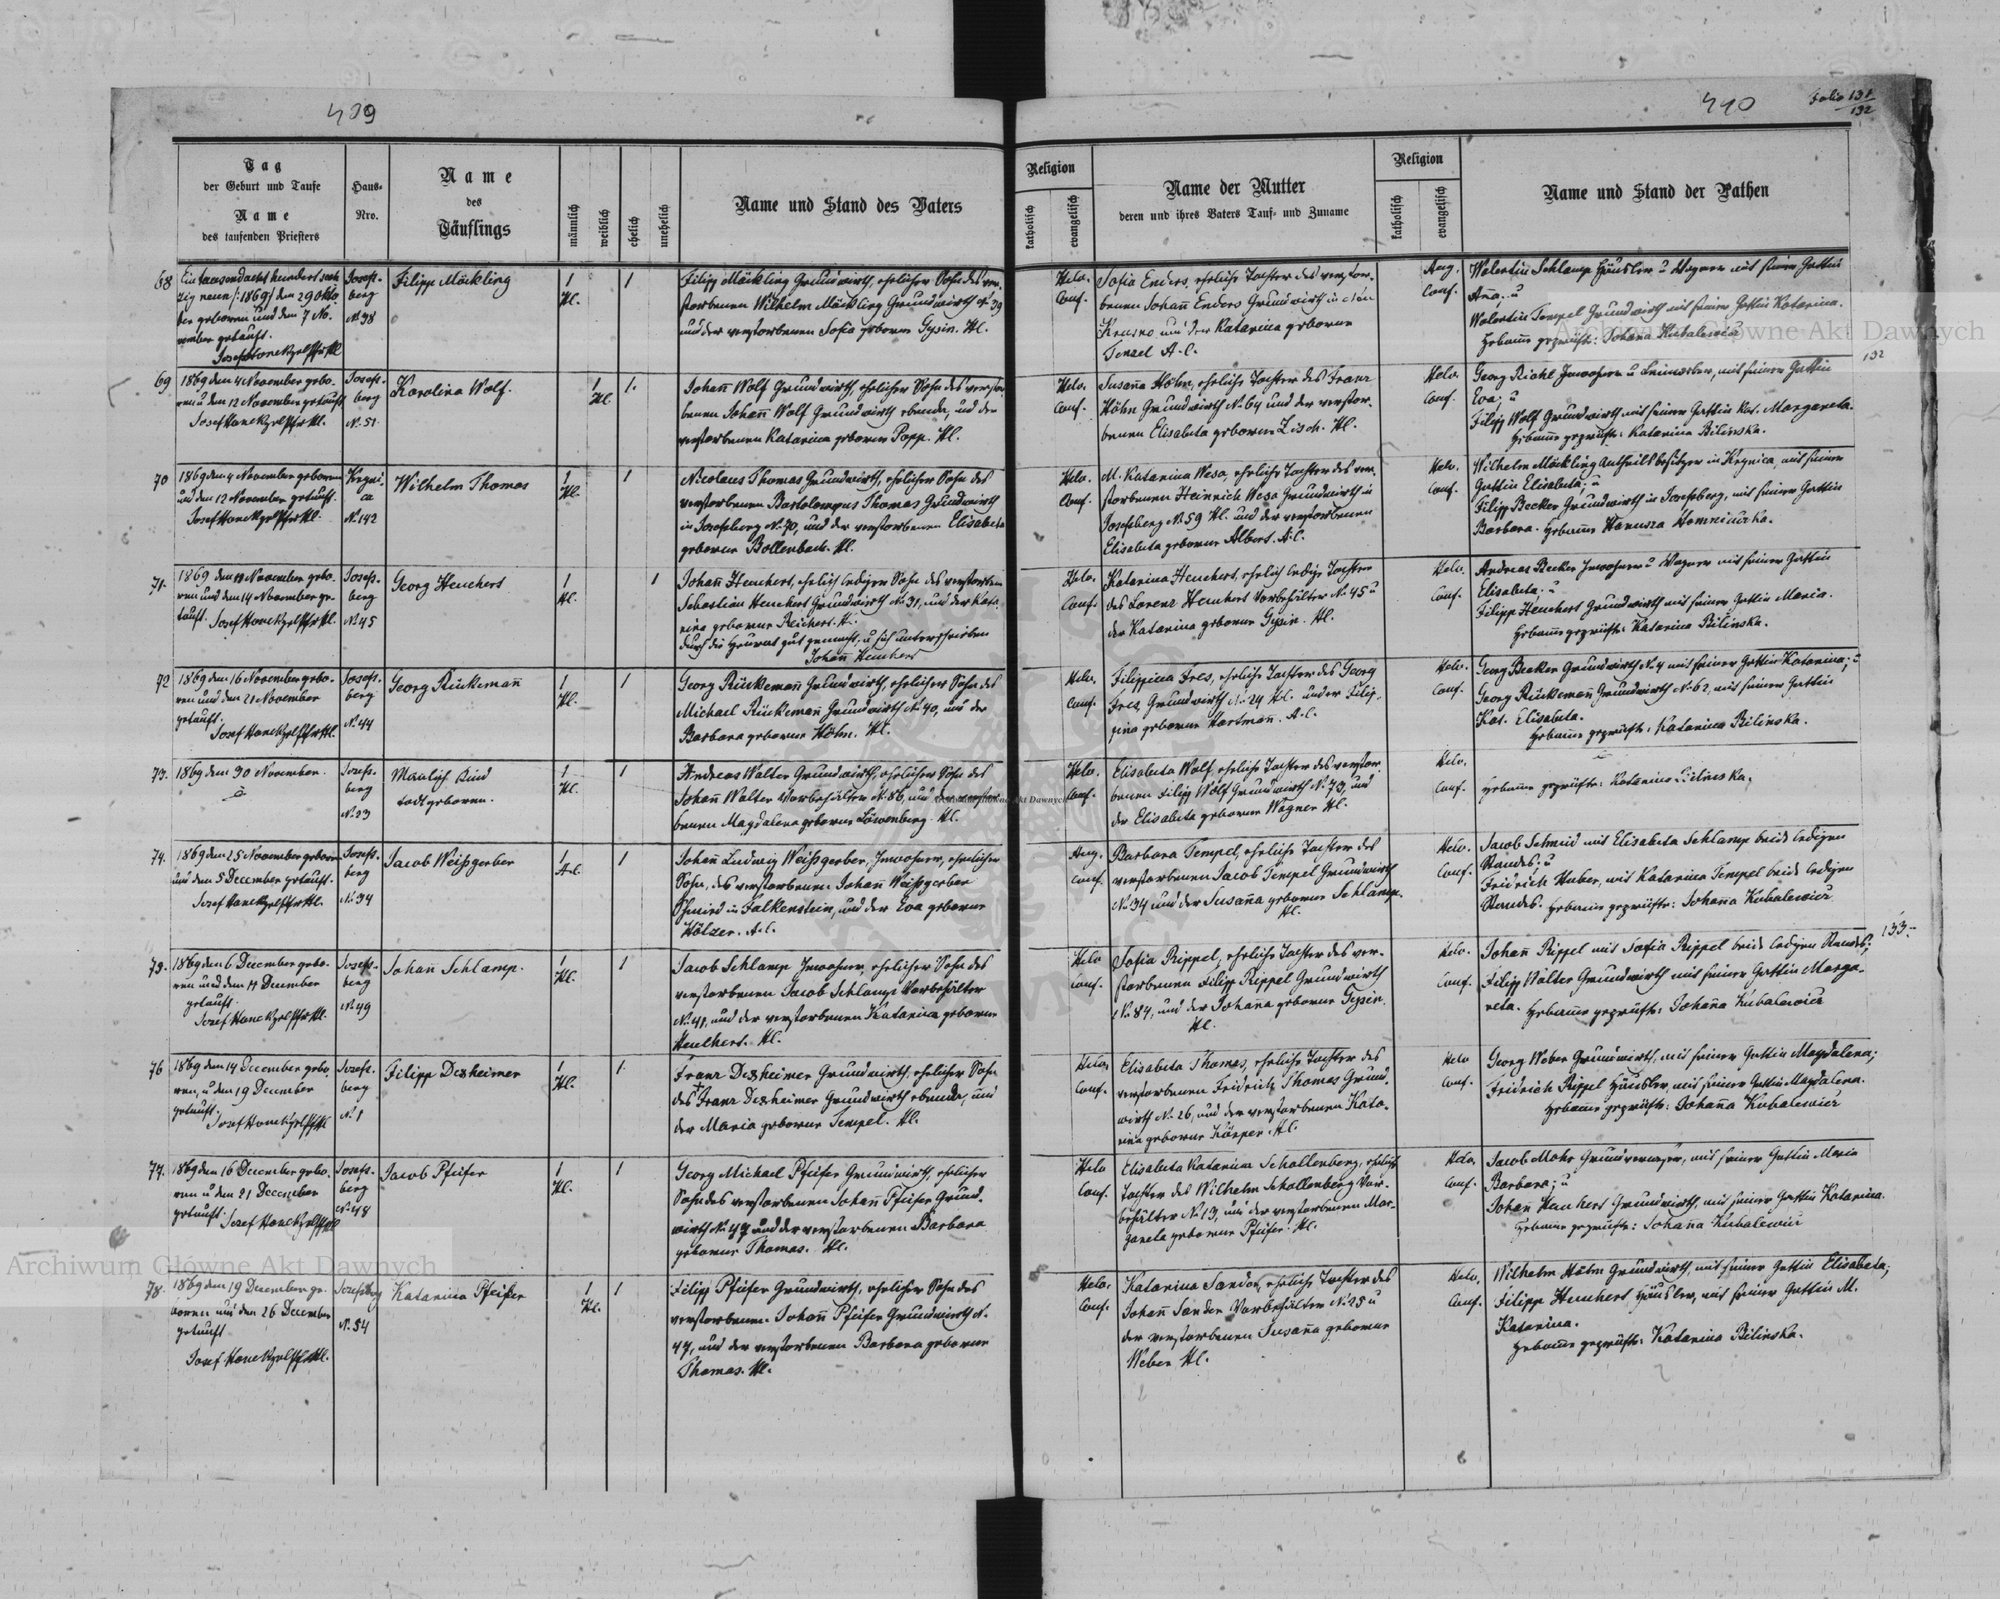 439
440
Folio 131
132
Tag
der Geburt und Taufe
Name
des taufenden Priesters
Haus-
Nro.
Name
des
Täuflings
männlich
weiblich
ehelich
unehelich
Name und Stand des Vaters
Religion
katholisch
evangelisch
Name der Mutter
deren und ihres Vaters Tauf- und Zuname
Religion
katholisch
evangelisch
Name und Stand der Pathen
68
Ein tausend acht hundert sech
zig neun /:1869/ den 29 Okto
ber geboren und den 7 No-
vember getauft.
Josefs-
berg
No 38
Filipp Möckling
1
Hl.
1
Filipp Möckling Grundwirth, ehelicher Sohn des ver-
storbenen Wilhelm Möckling Grundwirth No 39
und der verstorbenen Sofia geborne Gysin. Hl.
Helv.
Conf.
Sofia Enders, eheliche Tochter des verstor-
benen Johann Enders Grundwirth in
und der Katarina geborne
Tenzel A. C.
Aug.
Conf.
Walentin Schlamp Häusler u Wagner mit seiner Gattin
Anna. u
Walentin Tempel Grundwirth mit seiner Gattin Katarina.
Hebamme geprüfte: Johana Kubalewicz
132
69
1869 den 4 November gebo-
ren u den 12 November getauft
Josefs-
berg
No. 51
Karolina Wolf.
1
Hl.
1.
Johann Wolf Grundwirth, ehelicher Sohn des verstor-
benen Johann Wolf Grundwirth ebenda, und der
verstorbenen Katarina geborne Popp. Hl.
Helv.
Conf.
Susanna Höhn, eheliche Tochter des Franz
Höhn Grundwirth No 64 und der verstor-
benen Elisabeta geborne Lisch. Hl.
Helv.
Conf.
Georg Richl Inwohner u Leinweber, mit seiner Gattin
Eva; u
Filipp Wolf Grundwirth mit seiner Gattin Kat. Margareta.
Hebamme geprüfte: Katarina Bilinska.
70
1869 den 4 November geboren
und den 12 November getauft.
No 142
Wilhelm Thomas
1
Hl.
1
Nicolaus Thomas Grundwirth, ehelicher Sohn des
verstorbenen Bartolomeus Thomas Grundwirth
in Josefsberg No 70, und der verstorbenen Elisabeta
geborne Bollenbach. Hl.
Helv.
Conf.
M. Katarina Wesa, eheliche Tochter des ver-
storbenen Heinrich Wesa Grundwirth in
Josefsberg No 59 Hl. und der verstorbenen
Elisabeta geborne Albert. A. C.
Helv.
Conf.
Wilhelm Möckling Antheilsbesitzer in Krynica, mit seiner
Gattin Elisabeta; u
Filipp Becker Grundwirth in Josefsberg, mit seiner Gattin
Barbara. Hebamme
71.
1869 den 10 November gebo-
ren und den 14 November ge-
tauft.
Josefs-
berg
No 45
Georg Heuchert
1
Hl.
1
Johann Heuchert, ehelich lediger Sohn des verstorbenen
Sebastian Heuchert Grundwirth No 31, und der Kata-
rina geborne Reichert. Hl.
durch die Heurat gut gemacht, u sich unterschrieben
Johann Heuchert
Helv.
Conf.
Katarina Heuchert, ehelich ledige Tochter
des Lorenz Heuchert Vorbehälter No 45 u
der Katarina geborne Gysin. Hl.
Helv.
Conf.
Andreas Becker Inwohner u Wagner mit seiner Gattin
Elisabeta; u
Filipp Heuchert Grundwirth mit seiner Gattin Maria.
Hebamme geprüfte: Katarina Bilinska.
72
1869 den 16 November gebo-
ren und den 21 November
getauft.
Josefs-
berg
No 44
Georg Rückemann
1
Hl.
1
Georg Rückemann Grundwirth, ehelicher Sohn des
Michael Rückemann Grundwirth No 40, und der
Barbara geborne Höhn. Hl.
Helv.
Conf.
Filippina Fres, eheliche Tochter des Georg
Fres, Grundwirth No 24 Hl. und der Filip-
pina geborne Hartmann. A. C.
Helv.
Conf.
Georg Becker Grundwirth No 4 mit seiner Gattin Katarina; u
Georg Rückemann Grundwirth No 62, mit seiner Gattin
Kat. Elisabeta.
Hebamme geprüfte: Katarina Bilinska.
73.
1869 den 30 November.
Josefs-
berg
No 23
Männlich Kind
todt geboren.
1
Hl.
1
Andreas Walter Grundwirth, ehelicher Sohn des
Johann Walter Vorbehälter No 86, und der verstor-
benen Magdalena geborne Löwenberg. Hl.
Helv.
Conf.
Elisabeta Wolf, eheliche Tochter des verstor-
benen Filipp Wolf Grundwirth No 73, und
der Elisabeta geborne Wagner Hl.
Helv.
Conf.
Hebamme geprüfte: Katarina Bilinska.
74.
1869 den 25 November geboren
und den 5 December getauft.
Josefs-
berg
No 34
Jacob Weißgerber
1
A.C.
1
Johann Ludwig Weißgerber, Inwohner, ehelicher
Sohn, des verstorbenen Johann Weißgerber
Schmied in Falkenstein, und der Eva geborne
Hölzer. A. C.
Aug.
Conf.
Barbara Tempel, eheliche Tochter des
verstorbenen Jacob Tempel Grundwirth
No 34 und der Susanna geborne Schlamp.
Hl.
Helv.
Conf.
Jacob Schmid mit Elisabeta Schlamp beide ledigen
Standes; u
Fridrich Huber, mit Katarina Tempel beide ledigen
Standes. Hebamme geprüfte: Johanna Kubalewicz
133
75.
1869 den 6 December gebo-
ren und den 11 December
getauft.
Josefs-
berg
No 49
Johann Schlamp.
1
Hl.
1
Jacob Schlamp Inwohner, ehelicher Sohn des
verstorbenen Jacob Schlamp Vorbehälter
No 41, und der verstorbenen Katarina geborne
Heuchert. Hl.
Helv
Conf.
Sofia Rippel, eheliche Tochter des ver-
storbenen Filipp Rippel Grundwirth
No 84, und der Johanna geborne Gysin.
Hl.
Helv.
Conf.
Johann Rippel mit Sofia Rippel beide ledigen Standes;
Filipp Walter Grundwirth mit seiner Gattin Marga-
reta. Hebamme geprüfte: Johanna Kubalewicz
76
1869 den 14 December gebo-
ren, u den 19 December
getauft.
Josefs-
berg
No 1
Filipp Dexheimer
1
Hl.
1.
Franz Dexheimer Grundwirth, ehelicher Sohn
des Franz Dexheimer Grundwirth ebenda, und
der Maria geborne Tempel. Hl.
Helv.
Conf.
Elisabeta Thomas, eheliche Tochter des
verstorbenen Fridrich Thomas Grund-
wirth No 26, und der verstorbenen Kata-
rina geborne Körper. Hl.
Helv
Conf.
Georg Weber Grundwirth, mit seiner Gattin Magdalena;
Fridrich Rippel Häusler, mit seiner Gattin Magdalena.
Hebamme geprüfte: Johanna Kubalewicz
77.
1869 den 16 December gebo-
ren u den 21 December
getauft.
Josefs-
berg
No 48
Jacob Pfeifer
1
Hl.
1
Georg Michael Pfeifer Grundwirth, ehelicher
Sohn des verstorbenen Johann Pfeifer Grund-
wirth No 47 und der verstorbenen Barbara
geborne Thomas. Hl.
Helv
Conf.
Elisabeta Katarina Schallenberg, eheliche
Tochter des Wilhelm Schallenberg Vor-
behälter No 13, und der verstorbenen Mar-
gareta geborne Pfeifer. Hl.
Helv.
Conf.
Jacob Mohr mit seiner Gattin Maria
Barbara; u
Johann Heuchert Grundwirth, mit seiner Gattin Katarina.
Hebamme geprüfte: Johanna Kubalewicz
78.
1869 den 19 December ge-
boren und den 26 December
getauft
Josefsberg
No. 54
Katarina Pfeifer
1
Hl.
1
Filipp Pfeifer Grundwirth, ehelicher Sohn des
verstorbenen Johann Pfeifer Grundwirth No.
47, und der verstorbenen Barbara geborne
Thomas. Hl.
Helv.
Conf.
Katarina Sander, eheliche Tochter des
Johann Sander Vorbehälter No 25 u
der verstorbenen Susanna geborne
Weber Hl.
Helv.
Conf.
Wilhelm Höhn Grundwirth, mit seiner Gattin Elisabeta;
Filipp Heuchert Häusler, mit seiner Gattin M.
Katarina.
Hebamme geprüfte: Katarina Bilinska.
Archiwum Główne Akt Dawnych